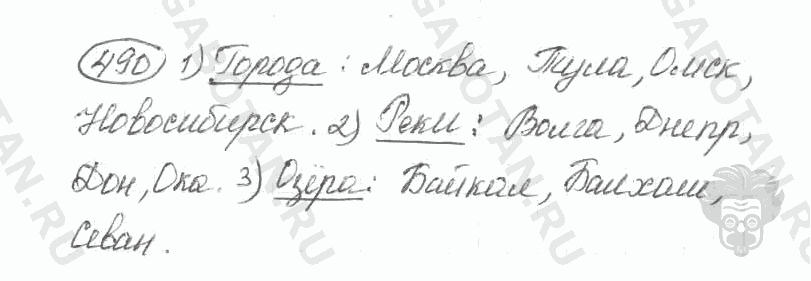 490 1) Города: Москва, Тула, Омск,
Новосибирск. 2) Реки: Волга, Днепр,
Дон, Ока. 3) Озёра: Байкал, Балхаш,
Севан.